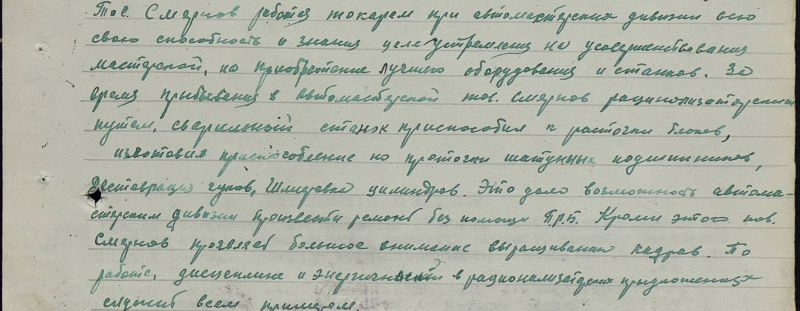 Тов. Смернов работая токарем при автомастерских дивизии всю
свою способность и знания целеустремлена на усовершенствования
мастерской, на приобретение лучшего оборудования и станков. За
время прибывания в автомастерской тов. Смернов рационализаторским
путем, сверлильный станок приспособил к расточки блоков,
изготовил приспособление по проточки шатунных подшипников,
реставрация чулков, Шлифовка цилиндров. Это дало возможность автома-
стерским дивизии произвести ремонт без помощи П.Р.Б. Кроми этого тов.
Смернов проявляет большое внимание выращивании кадров. По
работе, дисциплине и энергичности в рационализаторских предложениях
служит всем примером.